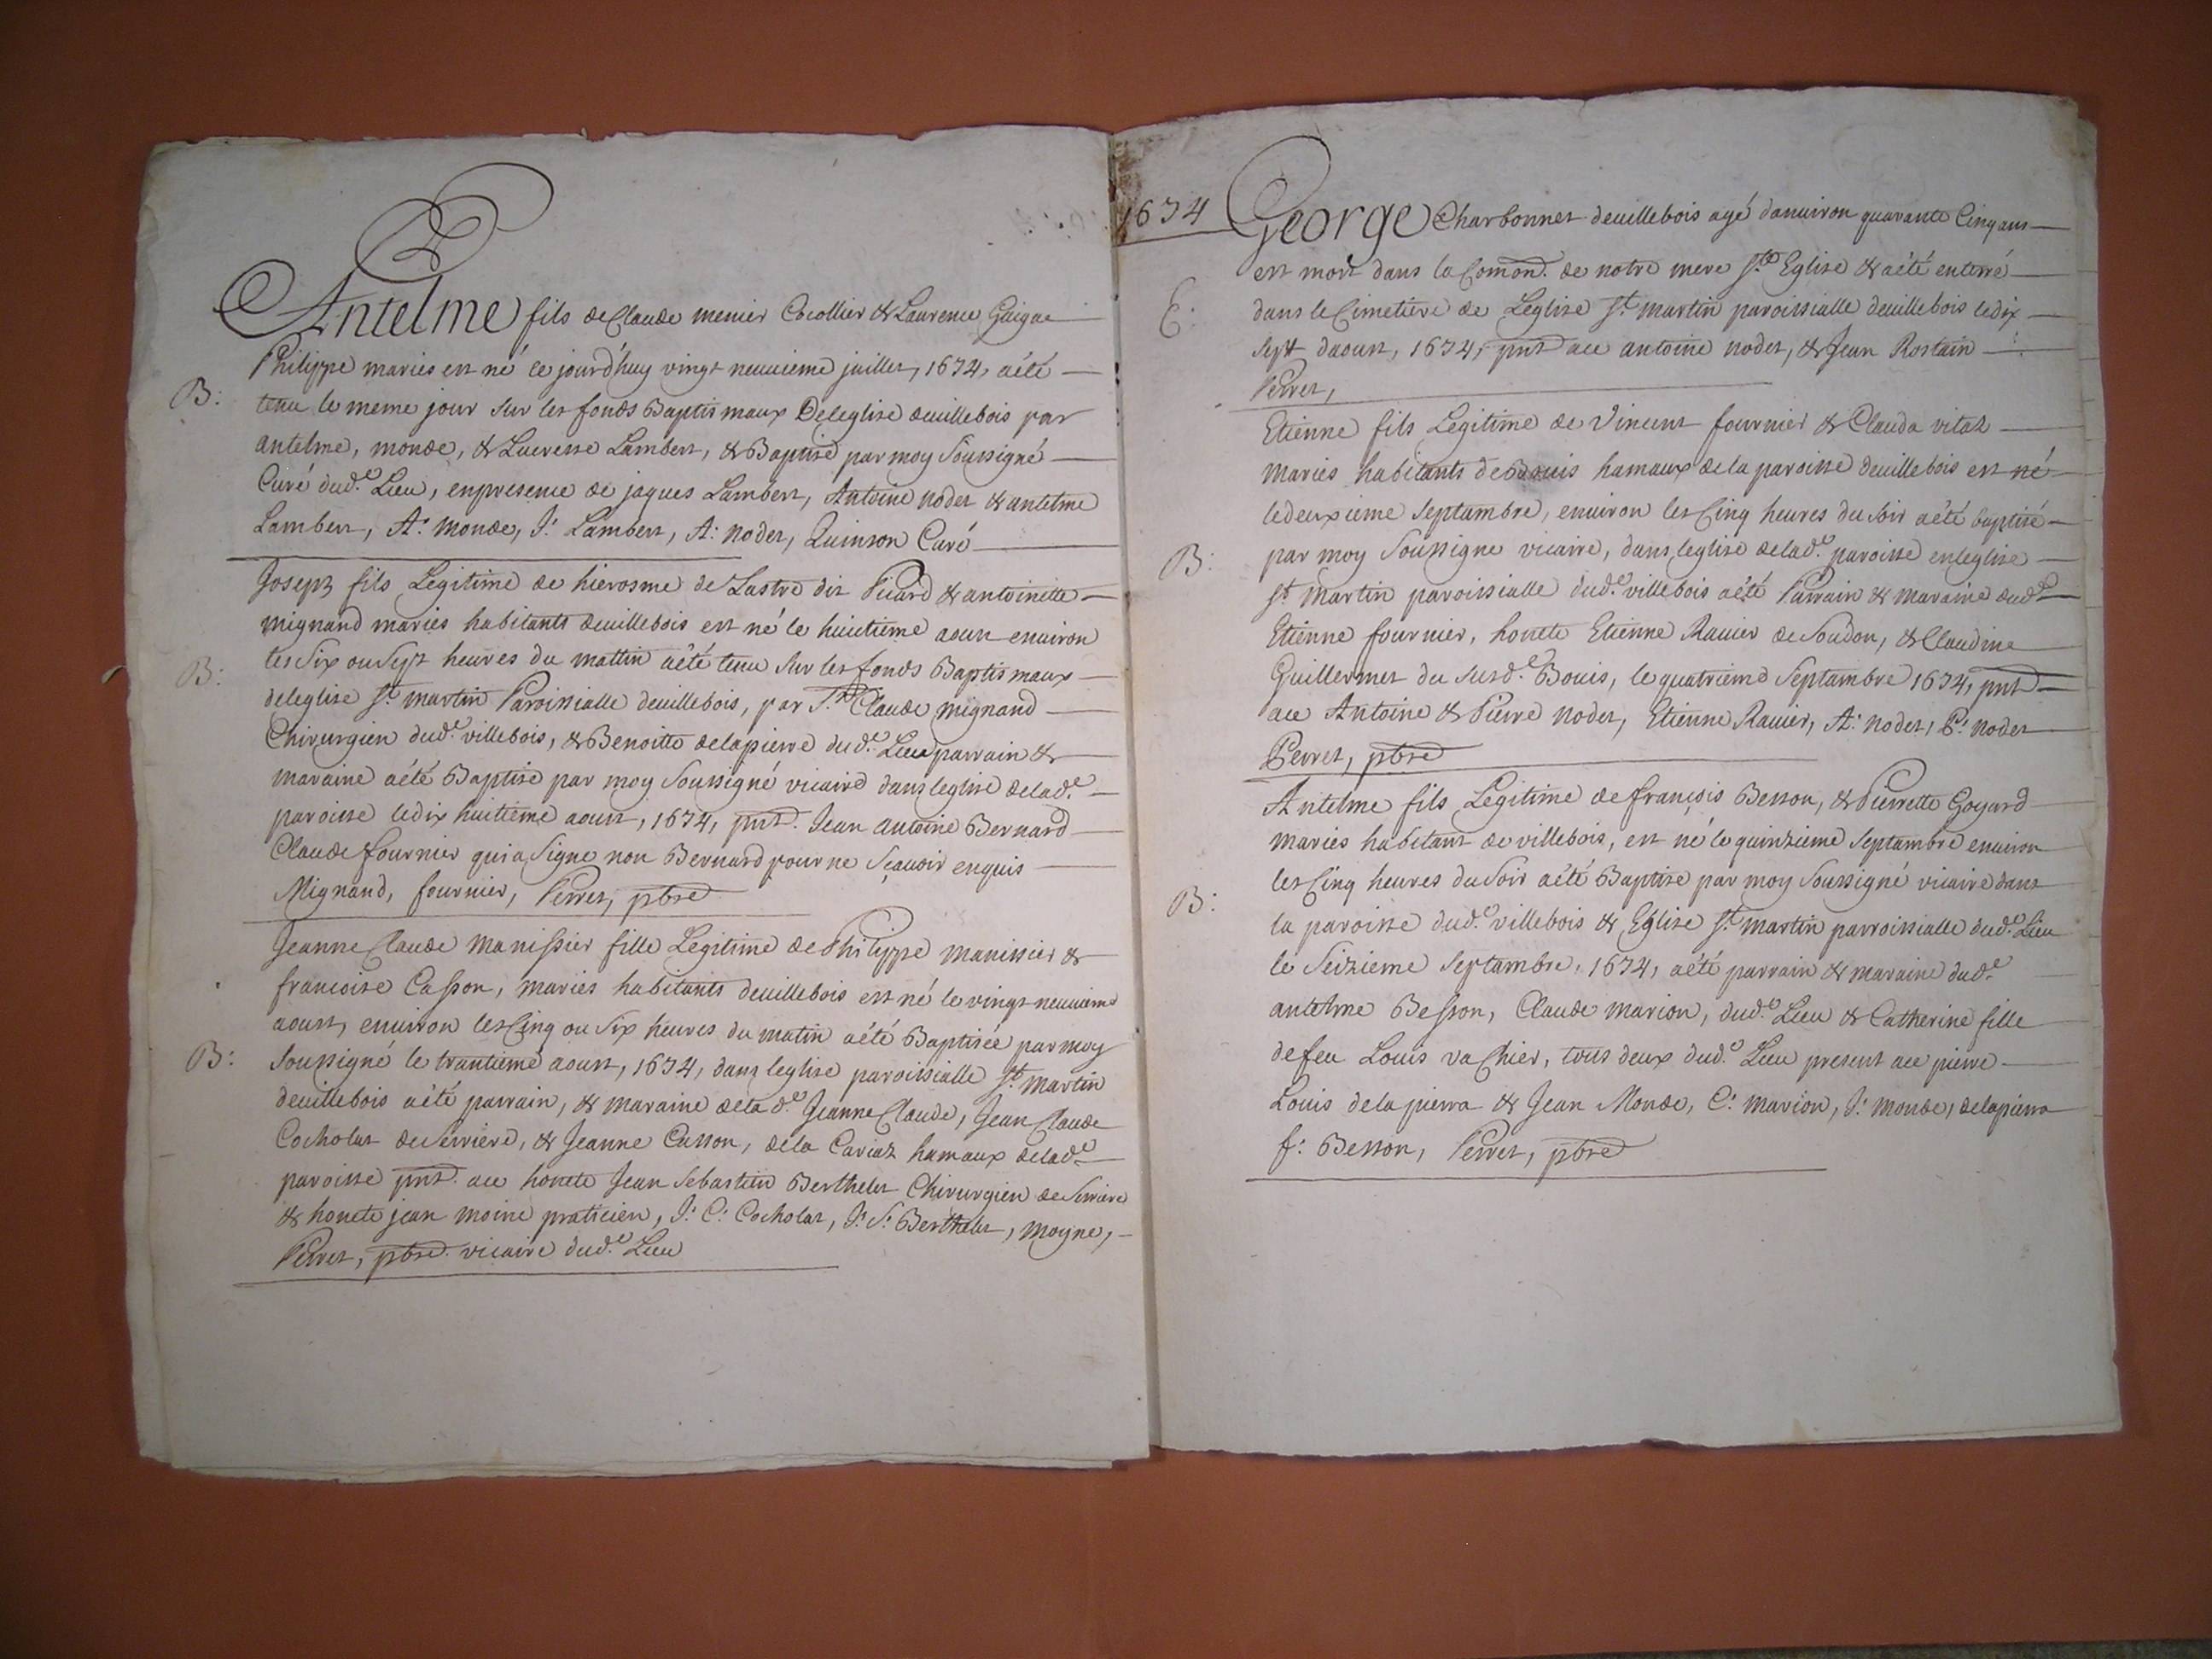 Antelme fils de Claude menier Cocollier & Laurence Guigue
Philippe mariés est né ce jourd'huy vingt neuvieme juillet, 1674, aété
B: tenu le meme jour sur les fonds Baptismaux Deleglise deuillebois par
antelme, monde, & Lucresse Lambert, & Baptisé par moy Soussigné
Curé dud.e Lieu, enpresence de jaques Lambert, Antoine nodet & antelme
Lambert, A: monde, J: Lambert, A: nodet, Quinson Curé
Joseph fils Legitime de hierosme de Lastre dit Picard & antoinette
mignand mariés habitants deuillebois est né le huitieme aoust enuiron
B: les Six ou Sept heures du mattin aété tenu sur les fonds Baptismaux
deleglise St martin Paroissialle deuillebois, par Sr Claude mignand
Chirurgien dud.e villebois, & Benoitte delapierre dud.e Lieu parrain &
maraine aété Baptisé par moy Soussigné vicaire dans leglise delad.e
paroisse ledix huitieme aoust, 1674, pnt. Jean antoine Bernard
Claude fournier qui a Signé non Bernard pour ne Sçauoir enquis
Mignand, fournier, Perret, pbre
Jeanne Claude Manissier fille Legitime de Philippe manissier &
francoise Casson, mariés habitants deuillebois est né le vingt neuuieme
aoust, enuiron les Cinq ou Six heures du matin aété Baptisée par moy
B: Soussigné le trantieme aoust, 1674, dans leglise paroissialle St martin
deuillebois aété parrain, & maraine delad.e Jeanne Claude, Jean Claude
Cocholat de Serriere, & Jeanne Casson, dela Cariaz hamaux delad.e
paroisse pnt. aue honete Jean Sebastien Berthelet Chirurgien de Serriere
& honete jean moine praticien, J: C: Cocholat, J: S: Berthelet, moyne,
Perret, pbre. vicaire dud.e Lieu
1674 George Charbonnet deuillebois agé danuiron quarante Cinq ans
est mort dans la Comon. de notre mere Ste Eglise & aété enterré
E: dans le Cimetiere de Leglise St martin paroissialle deuillebois ledix
Sept daoust, 1674, pnt aue antoine nodet, & Jean Rostain
Perret,
Etienne fils Legitime de Vincent fournier & Clauda vitaz
mariés habitants de Bouis hamaux dela paroisse deuillebois est né
ledeuxieme Septambre, enuiron les Cinq heures du Soir aété baptisé
B: par moy Soussigne vicaire, dans leglise delad.e paroisse enleglise
St martin paroissialle dud.e villebois aété Parrain & maraine dud.e
Etienne fournier, honete Etienne Rauier de Soudon, & Claudine
Guillermet du Susd.e Bouis, le quatrieme Septambre 1674, pnt
aue Antoine & Pierre nodet, Etienne Rauier, A: nodet, P: nodet
Perret, pbre
Antelme fils Legitime de françois Besson, & Pierrette Goyard
mariés habitant de villebois, est né le quinzieme Septambre enuiron
les Cinq heures du Soir aété Baptisé par moy Soussigné vicaire dans
B: la paroisse dud.e villebois & Eglise St martin parroissialle dud.e Lieu
le Seizieme Septambre, 1674, aété parrain & maraine dud.e
antelme Besson, Claude marion, dud.e Lieu & Catherine fille
defeu Louis vachier, tous deux dud.e Lieu present aue pierre
Louis dela pierra & Jean Monde, C: marion, J: monde, delapierra
f: Besson, Perret, pbre